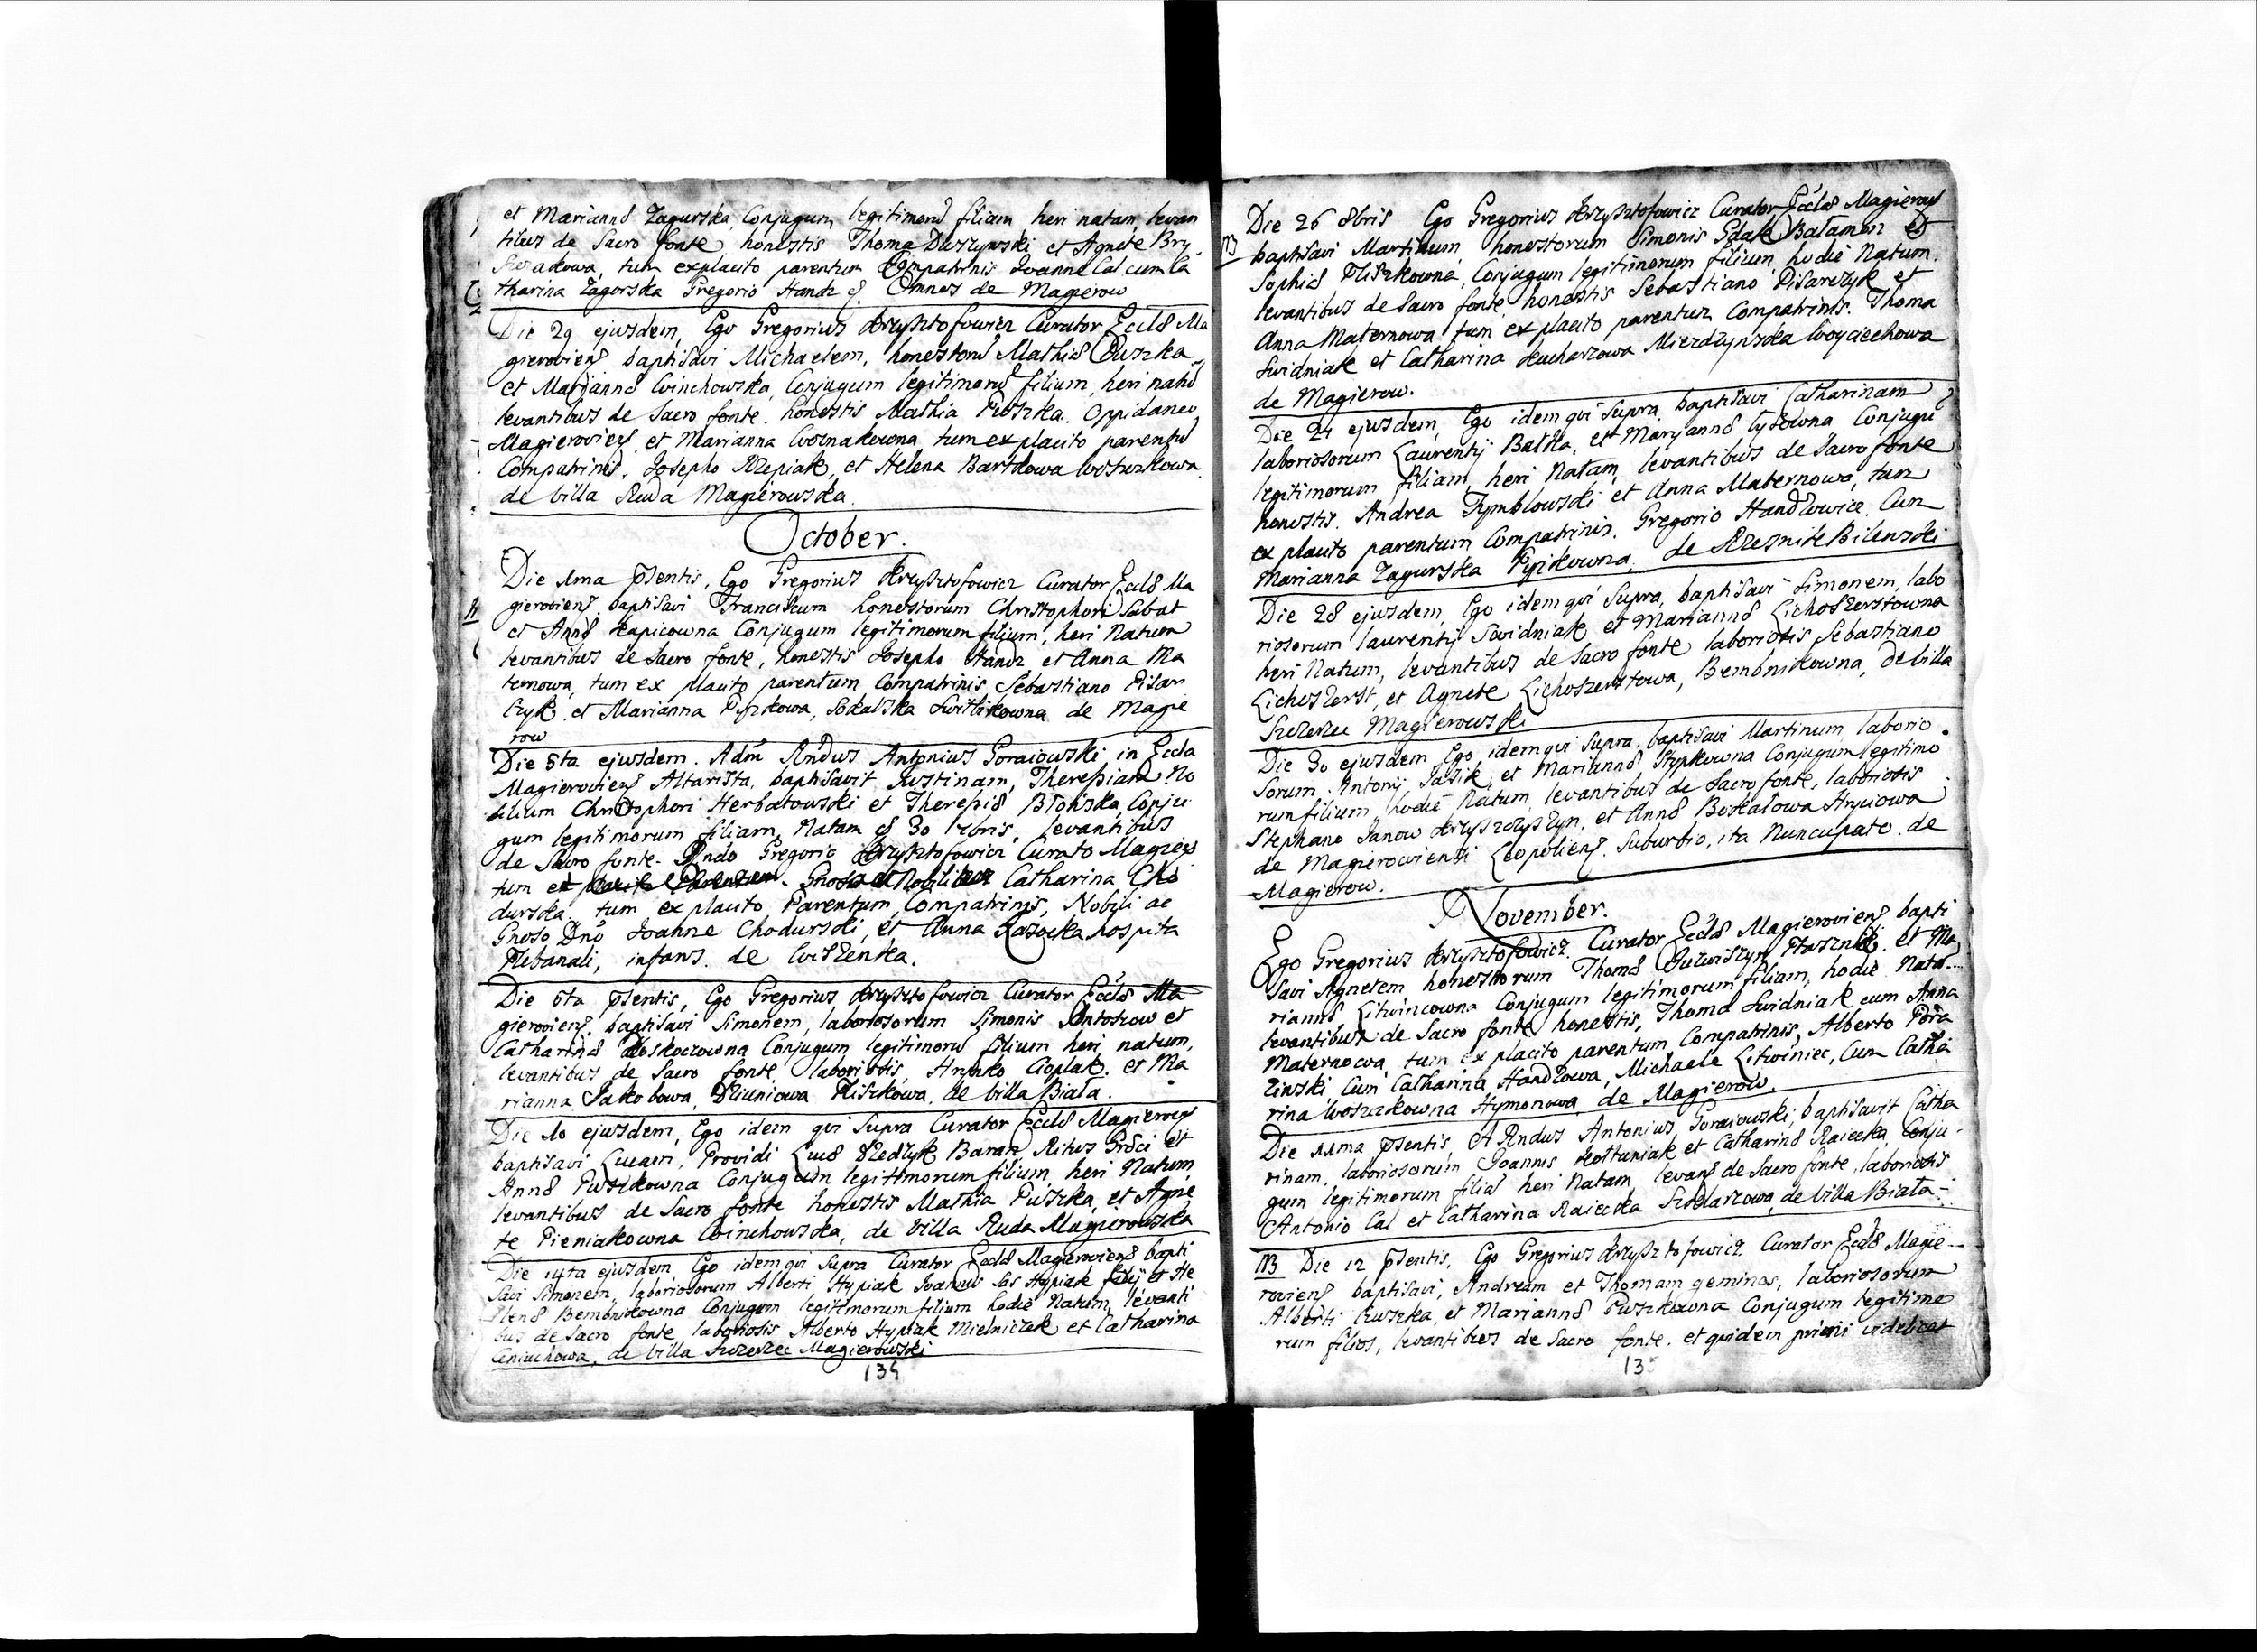 et Mariannæ Zagurska, Conjugum legitimorum filiam heri natam, levan
tibus de Sacro fonte honestis Thoma Duszynski et Agnete Bry
tum explacito parentum Compatrinis Joanne Cal cum Ca
tharina Zagorska Gregorio Handz Omnes de Magierow
Die 29 ejusdem, Ego Gregorius Krzysztofowicz Curator Eccl Ma
gieroviens baptisavi Michaelem, honestorum Mathiæ Puszka
et Maryannæ Winchowska, Conjugum legitimorum filium, heri natum
levantibus de Sacro fonte. honestis Mathia Puszka Oppidaneo
Magieroviens et Marianna Woznakowna tum explacito parentum
Compatrinis, Josepho Rzepiak, et Helena Bartkowa
de villa Ruda Magierowska.
October.
Die 1ma Psentis, Ego Gregorius Krzysztofowicz Curator Eccl Ma
gieroviens baptisavi Franciscum honestorum Christophori Sabat
et Annæ Kapicowna Conjugum legitimorum filium, heri Natum
levantibus de Sacro fonte, honestis Josepho Handz et Anna Ma
ternowa, tum ex placito parentum Compatrinis Sebastiano Pisar
czyk et Marianna Sokalska de Magie
row
Die 5ta ejusdem. Adm Rndus Antonius Goraiowski in Eccla
Magieroviens Altarista, baptisavit Justinam, Theressiam No
bilium Christophori Herbatowski et Theresiæ Błońska, Conju
gum legitimorum filiam, Natam 30 7bris, levantibus
de Sacro fonte Rndo Gregorio Krzysztofowicz Curato Magiers
tum Catharina Cho
durska tum ex placito Parentum Compatrinis, Nobili ac
Gnoso Dno Joanne Chodurski, et Anna hospita
Plebanali, infans de Wiszenka.
Die 6ta Psentis, Ego Gregorius Krzysztofowicz Curator Eccl Ma
gieroviens baptisavi Simonem, laboriosorum Simonis Antoszow et
Catharinæ Conjugum legitimorum filium heri natum,
levantibus de Sacro fonte laboriosis Hrynko Cioplak et Ma
rianna Jakobowa, Pliszkowa, de villa Biała.
Die 10 ejusdem, Ego idem qui Supra Curator Eccl Magierovs
baptisavi Lucam, Providi Lucæ Baran Ritus Græci et
Annæ Puszkowna Conjugum legitimorum filium, heri Natum,
levantibus de Sacro fonte honestis Mathia Puszka, et Agne
te Pieniakowna Winchowska, de Villa Ruda Magierowska
Die 14ta ejusdem, Ego idem qui Supra Curator Eccl Magieroviens bapti
savi Simonem, laboriosorum Alberti Hypiak et He
lenæ Bembnikowna Conjugum legitimorum filium hodie Natum, levanti
bus de Sacro fonte laboriosis Alberto Hypiak Mielniczek et Catharina
de villa Szczerzec Magierowski
134
Die 26 8bris Ego Gregorius Krzysztofowicz Curator Eccl Magierovs
baptisavi Martinum, honestorum Simonis Balamon et
Sophiæ Pliszkowna, Conjugum legitimorum filium, hodie Natum.
levantibus de Sacro fonte, honestis Sebastiano Pisarczyk et
Anna Maternowa tum explacito parentum Compatrinis. Thoma
Swidniak et Catharina Kucharzowa Mierdzynska Woyciechowa
de Magierow.
Die 24 ejusdem, Ego idem qui Supra baptisavi Catharinam
laboriosorum Laurentij Batka, et Maryannæ Conjugum
legitimorum filiam, heri Natam, levantibus de Sacro fonte
honestis. Andrea Tymblowski et Anna Maternowa, tum
ex placito parentum Compatrinis. Gregorio Handzowicz. Cum
Marianna Zagurska de Bilenski
Die 28 ejusdem, Ego idem qui Supra, baptisavi Simonem, labo
riosorum laurentij Swidniak et Mariannæ Lichoszerstowna
heri Natum, levantibus de Sacro fonte laboriosis Sebastiano
Lichoszerst, et Agnete Lichoszerstowa, Bembnikowna, de villa
Szczerzec Magierowski
Die 30 ejusdem Ego, idem qui Supra, baptisavi Martinum laborio
sorum Antonij Jasik, et Mariannæ Stypkowna Conjugum legitimo
rum filium, hodie Natum levantibus de Sacro fonte, laboriosis
Stephano Janow et Annæ Boskałowa Hryciowa
de Magierowiensi Leopoliens Suburbio, ita Nuncupato de
Magierow.
November.
Ego Gregorius Krzysztofowicz Curator Eccl Magieroviens bapti
savi Agnetem honestorum Thomæ et Ma
riannæ Litwincowna Conjugum legitimorum filiam, hodie Nata
levantibus de Sacro fonte honestis, Thoma Swidniak cum Anna
Maternowa, tum ex placito parentum Compatrinis, Alberto
Cum Catharina Handzowa, Michaele Litwiniec, Cum Catha
rina Woszczkowna Hymonowa de Magierow.
Die 11ma Psentis A Rndus Antonius Goraiowski, baptisavit Catha
rinam, laboriosorum Joannis Kołtuniak et Catharinæ Raiecka, Conju
gum legitimorum filiam heri Natam, levans de Sacro fonte laboriosis
Antonio Cal et Catharina Raiecka de Villa Biała
NB Die 12 Psentis, Ego Gregorius Krzysztofowicz Curator Eccl Magie
roviens baptisavi, Andream et Thomam geminos, laboriosorum
Alberti Puszka, et Mariannæ Puszkowna Conjugum legitimo
rum filios, levantibus de Sacro fonte. et quidem primi videlicet
13